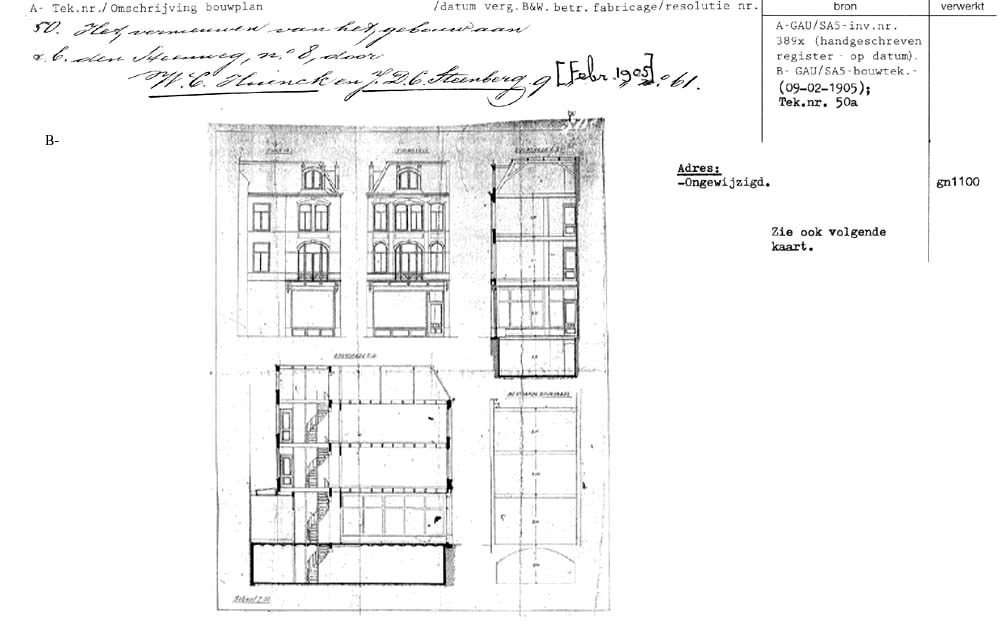 A- Tek.nr./ Omschrijving bouwplan /datum verg.B&W. betr. fabricage/resolutie nr. bron verwerkt
50. Het vernieuwen van het gebouw aan
d. C. den Steenweg, no. 8, door
W. C. en J. D. C. Steenberg. 9 [Febr. 1905] no. 61.
A-GAU/SA5-inv.nr.
389x (handgeschreven
register - op datum).
B- GAU/SA5-bouwtek.-
(09-02-1905);
Tek.nr. 50a
B-
Adres:
-Ongewijzigd.
gn1100
Zie ook volgende
kaart.